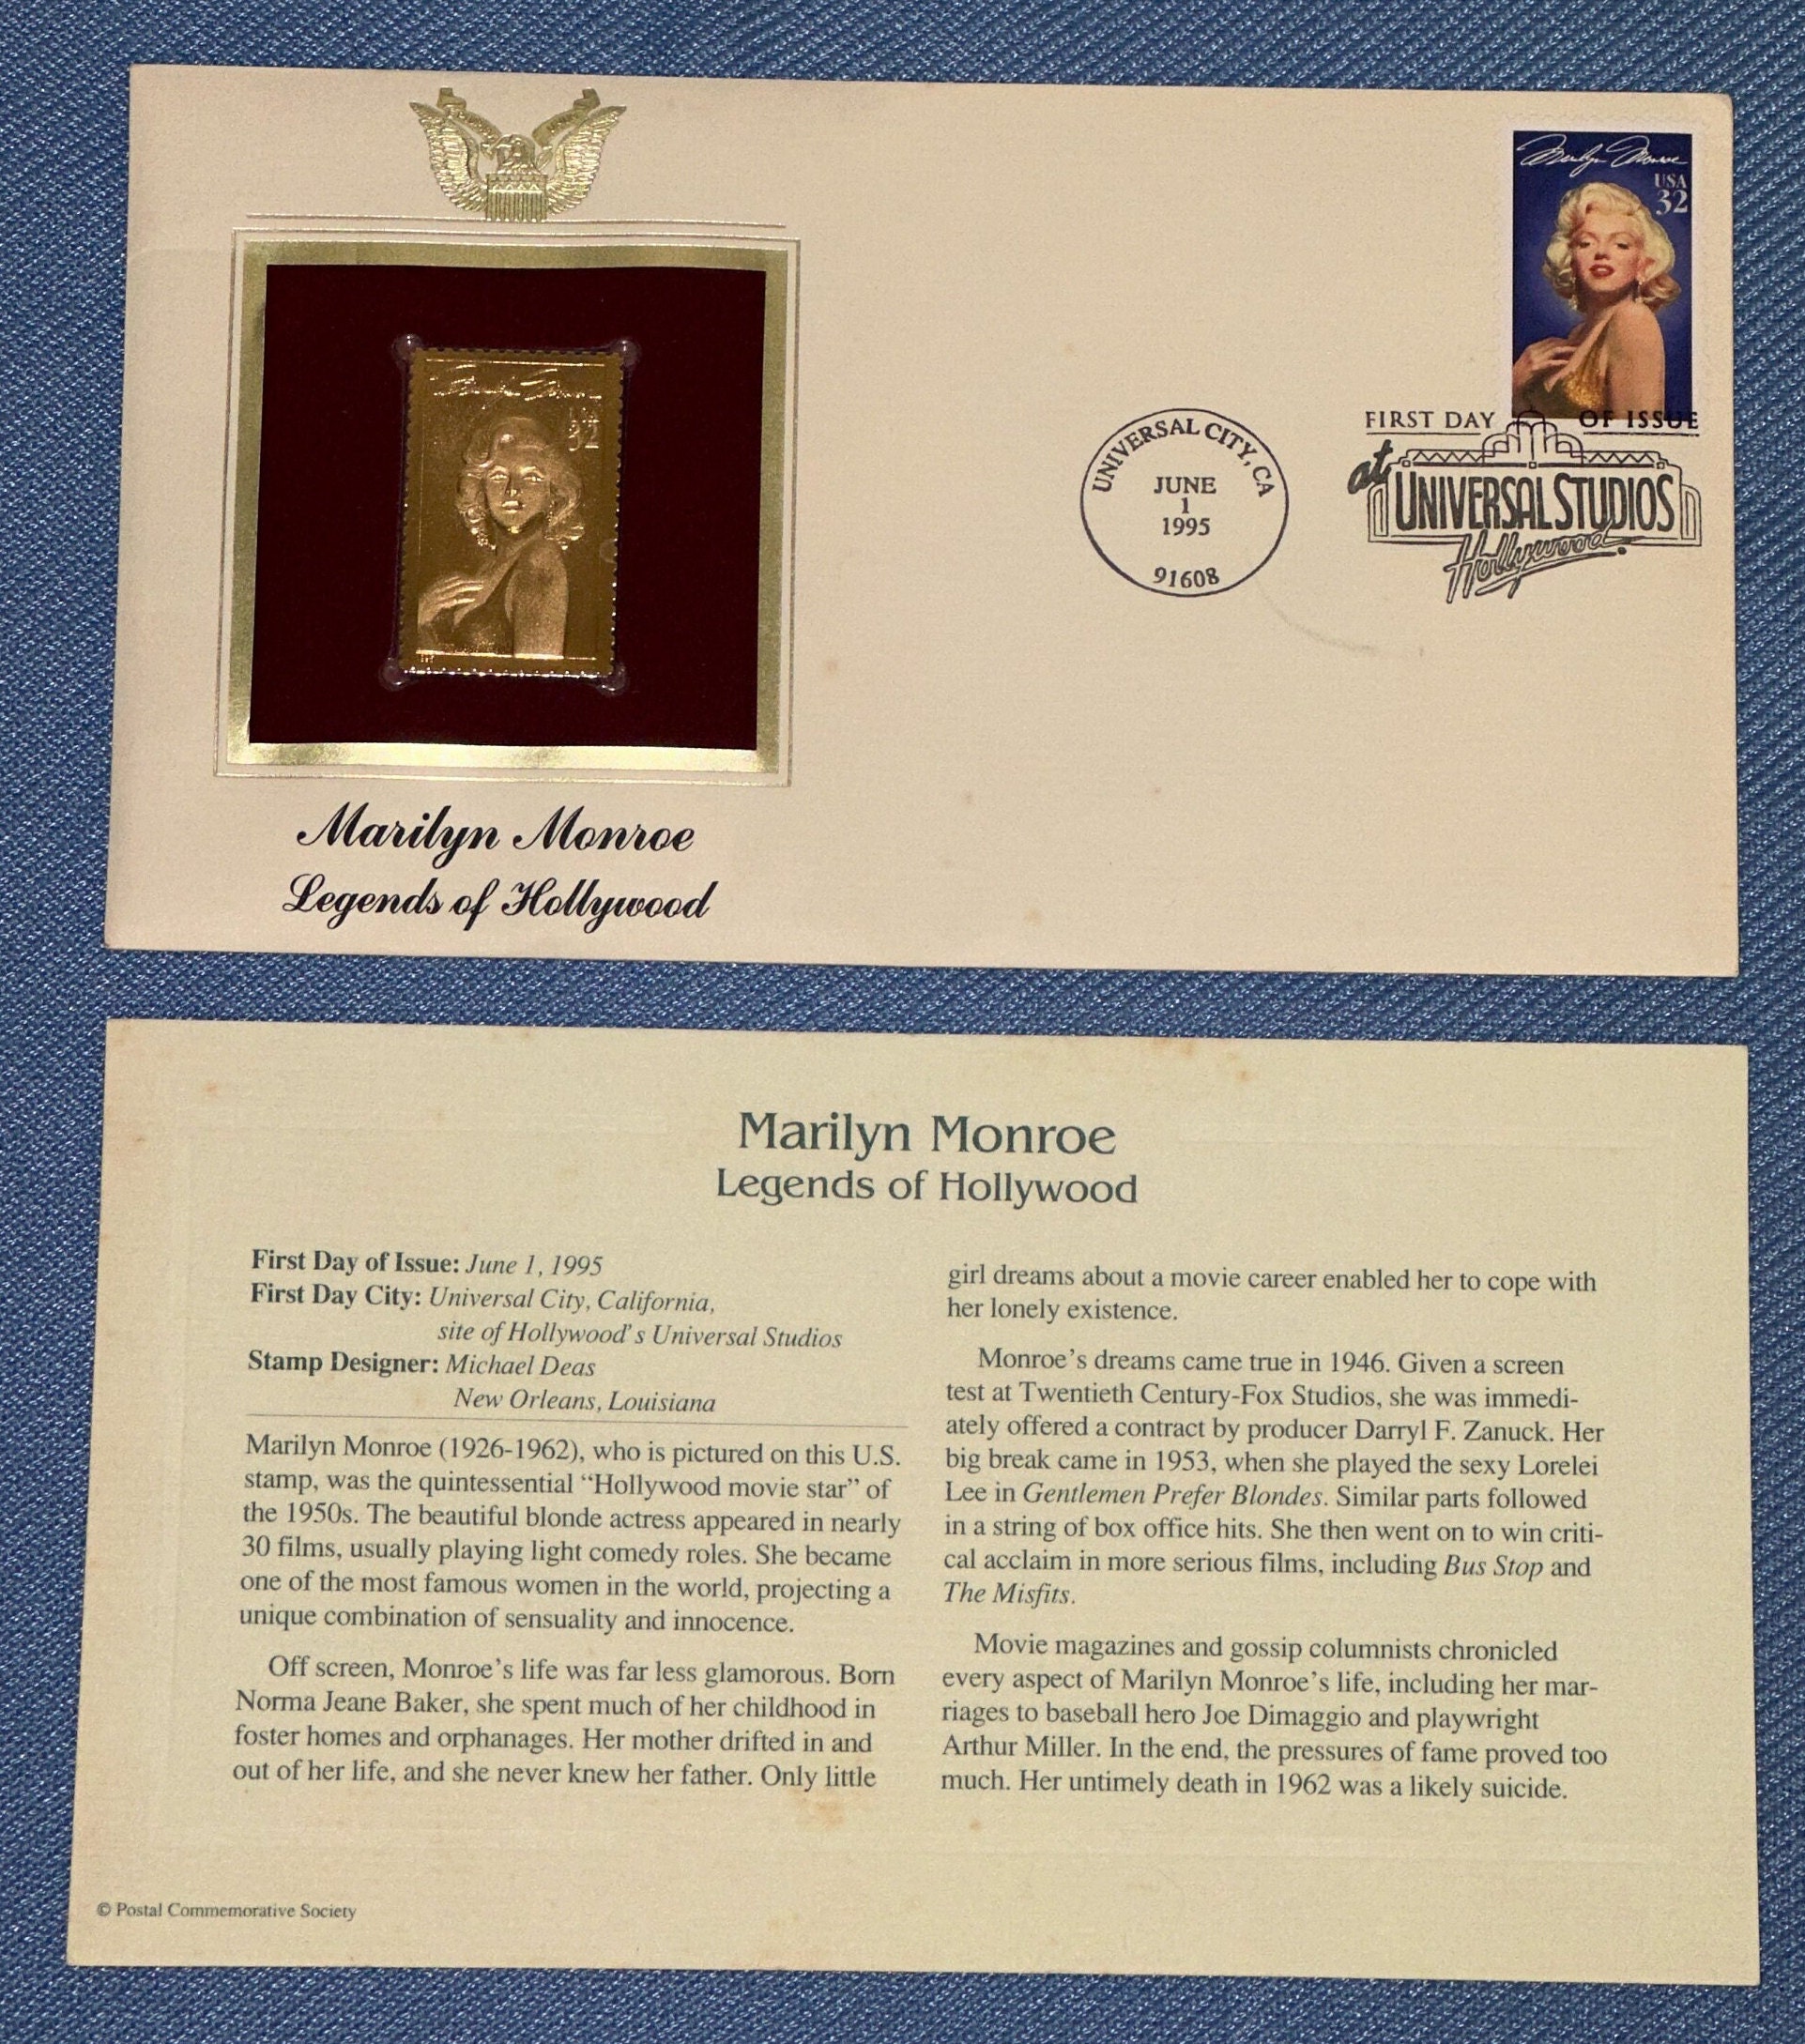 Marilyn Monroe
USA
32
Marilyn Monroe
USA
32
UNIVERSAL CITY, CA
JUNE
1
1995
91608
FIRST DAY OF ISSUE
at UNIVERSAL STUDIOS
Hollywood
Marilyn Monroe
Legends of Hollywood
Marilyn Monroe
Legends of Hollywood
First Day of Issue: June 1, 1995
First Day City: Universal City, California,
site of Hollywood's Universal Studios
Stamp Designer: Michael Deas
New Orleans, Louisiana
Marilyn Monroe (1926-1962), who is pictured on this U.S.
stamp, was the quintessential “Hollywood movie star” of
the 1950s. The beautiful blonde actress appeared in nearly
30 films, usually playing light comedy roles. She became
one of the most famous women in the world, projecting a
unique combination of sensuality and innocence.
Off screen, Monroe's life was far less glamorous. Born
Norma Jeane Baker, she spent much of her childhood in
foster homes and orphanages. Her mother drifted in and
out of her life, and she never knew her father. Only little
girl dreams about a movie career enabled her to cope with
her lonely existence.
Monroe's dreams came true in 1946. Given a screen
test at Twentieth Century-Fox Studios, she was immedi-
ately offered a contract by producer Darryl F. Zanuck. Her
big break came in 1953, when she played the sexy Lorelei
Lee in Gentlemen Prefer Blondes. Similar parts followed
in a string of box office hits. She then went on to win criti-
cal acclaim in more serious films, including Bus Stop and
The Misfits.
Movie magazines and gossip columnists chronicled
every aspect of Marilyn Monroe's life, including her mar-
riages to baseball hero Joe Dimaggio and playwright
Arthur Miller. In the end, the pressures of fame proved too
much. Her untimely death in 1962 was a likely suicide.
© Postal Commemorative Society